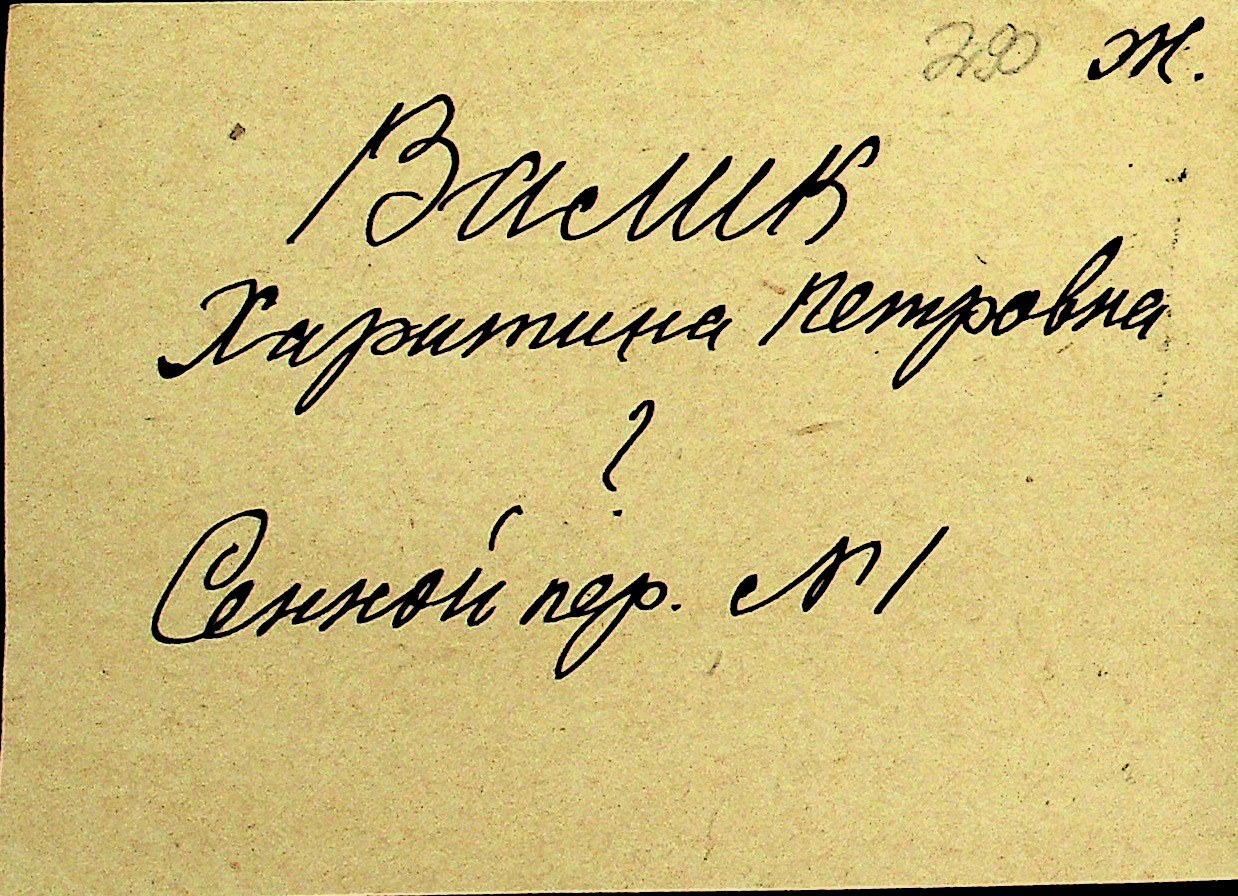 290 ж.
Васик
Харитина Петровна
?
Сенной пер. №1